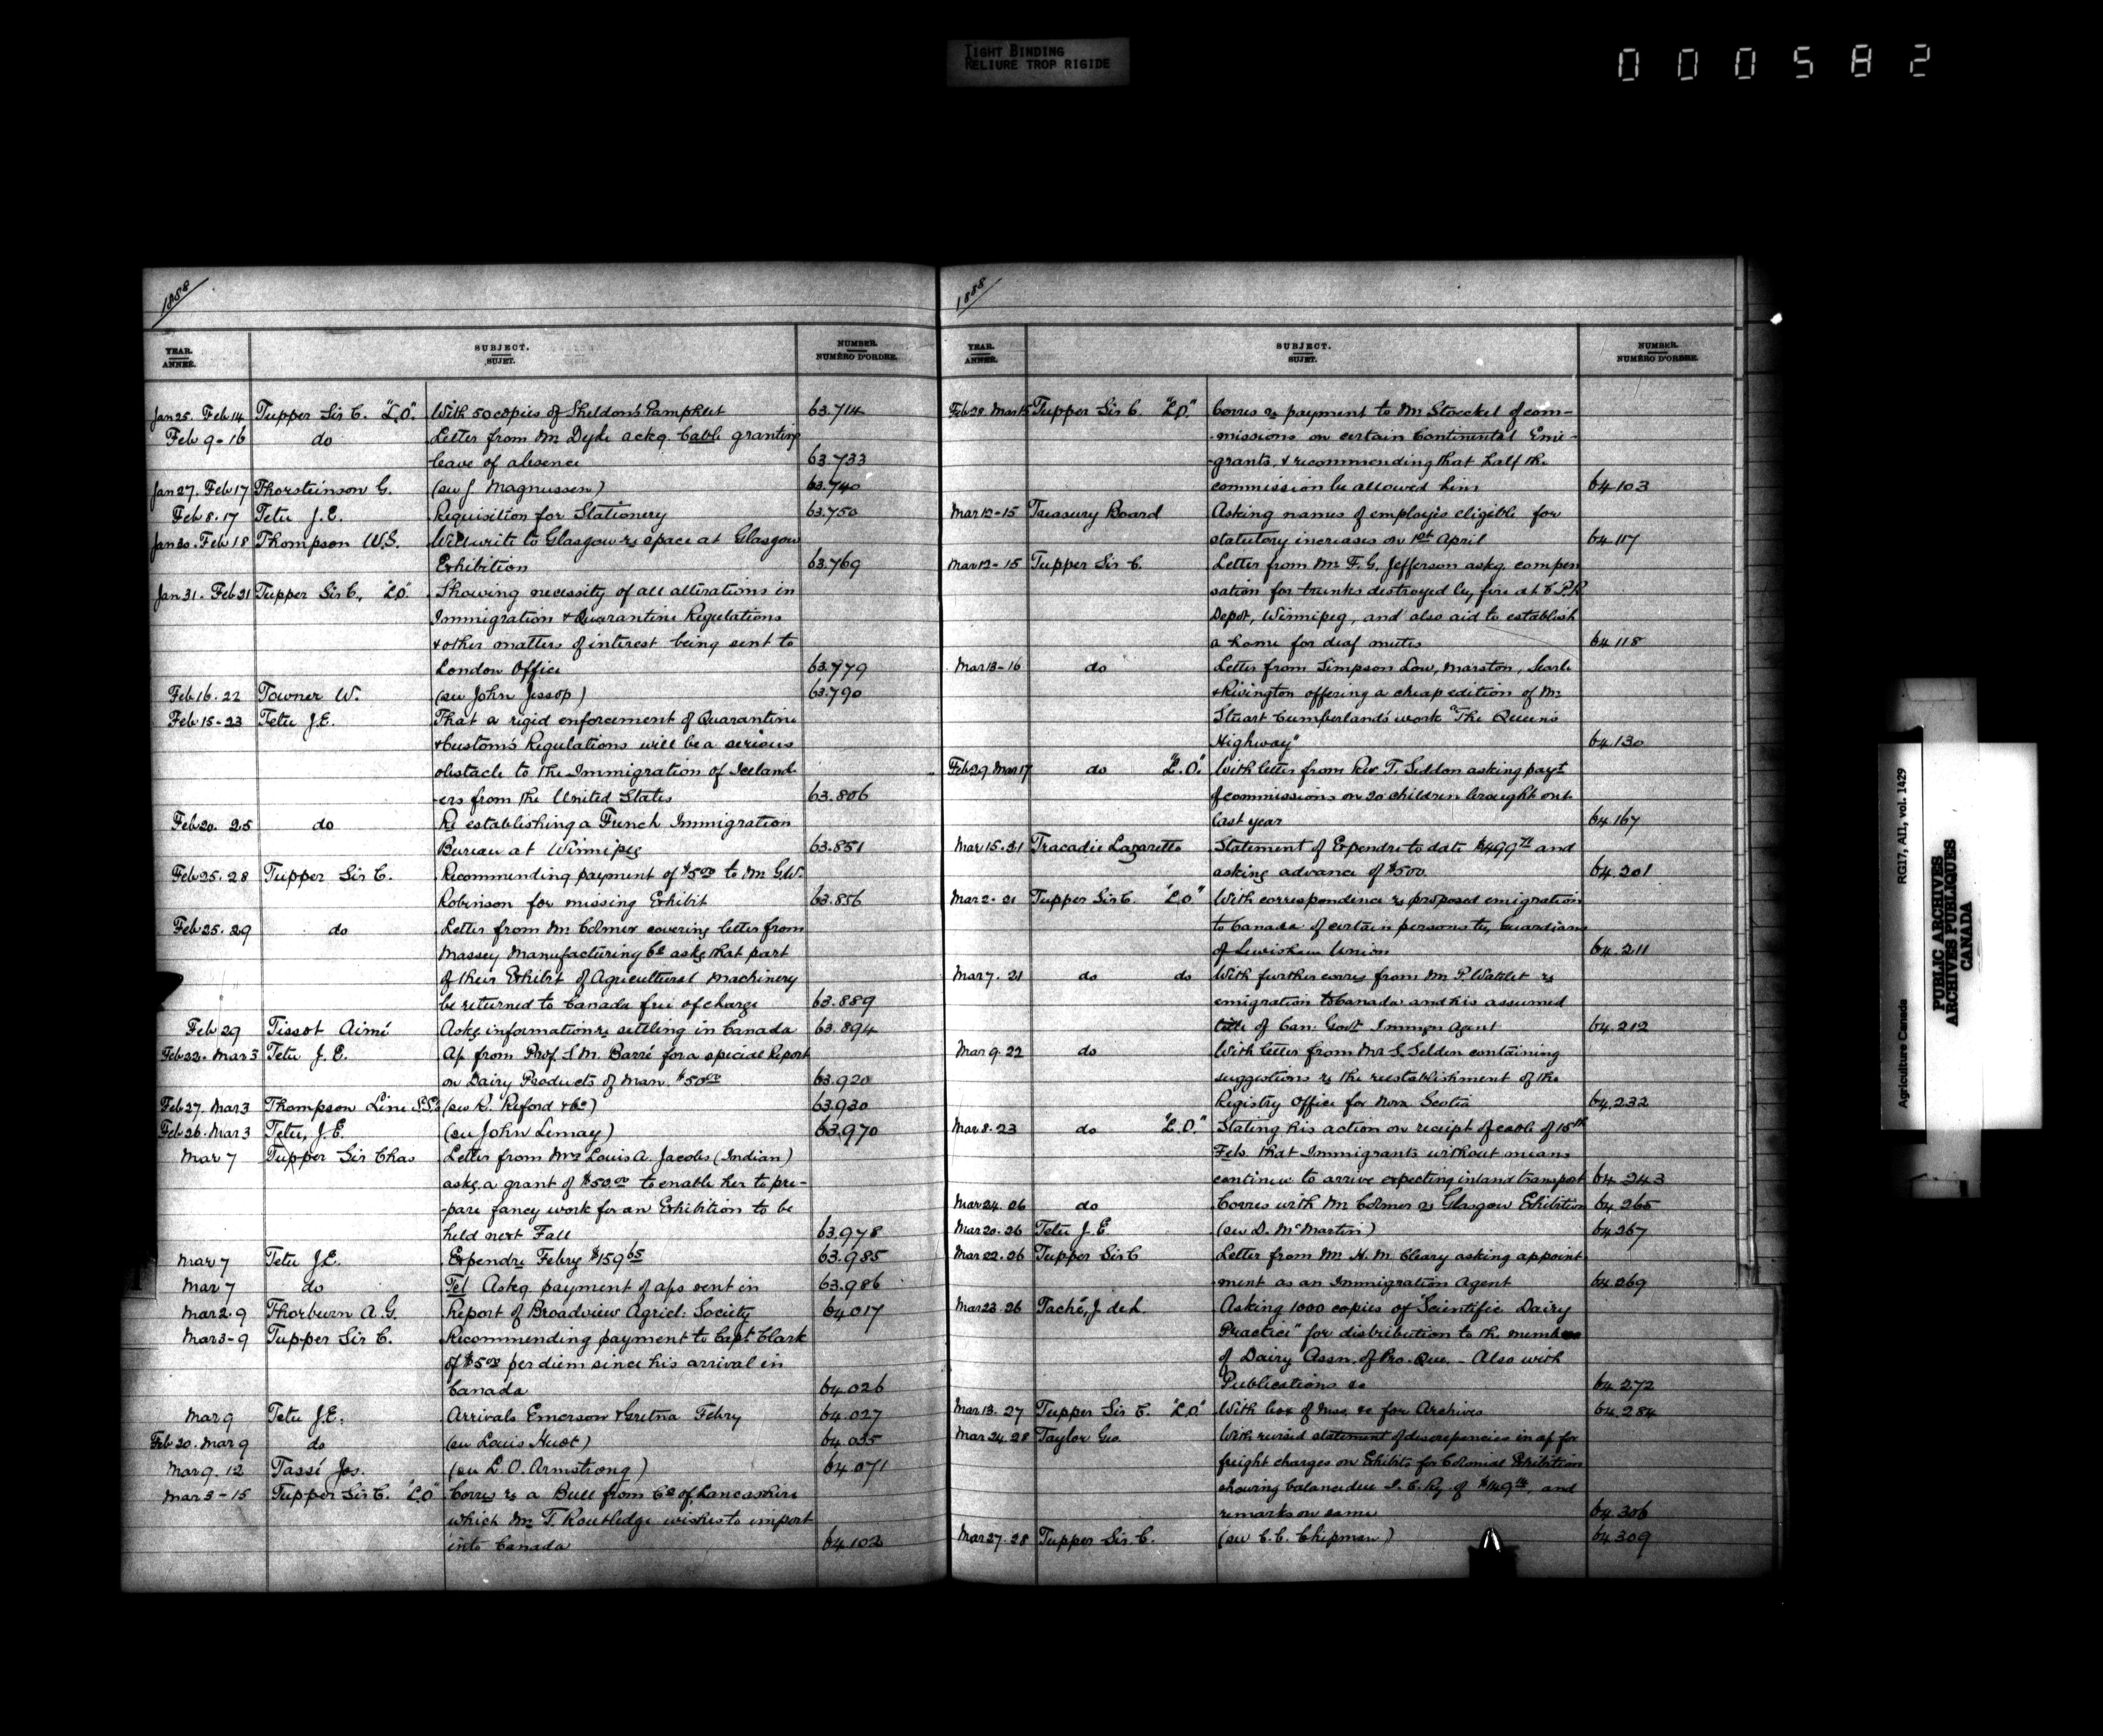 TIGHT BINDING
RELIURE TROP RIGIDE
000582
1888
YEAR. ANNÉE. SUBJECT. SUJET. NUMBER. NUMÉRO D'ORDRE.
Jan 25. Feb 14 Tupper Sir C. "L.O." With 50 copies of Sheldon's Pamphlet 63.714
Feb 9-16 do Letter from Mr Dyke ackg. Cable granting
leave of absence 63.733
Jan 27. Feb 17 Thorsteinson G. (see J. Magnussen) 63.740
Feb 8.17 Tetu J.E. Requisition for Stationery 63.750
Jan 30. Feb 18 Thompson W.S. Will write to Glasgow re space at Glasgow
Exhibition 63.769
Jan 31. Feb 21 Tupper Sir C, "L.O." Showing necessity of all alterations in
Immigration & Quarantine Regulations
& other matters of interest being sent to
London Office 63.779
Feb 16.22 Towner W. (see John Jessop) 63.790
Feb 15-23 Tetu J.E. That a rigid enforcement of Quarantine
& Custom's Regulations will be a serious
obstacle to the Immigration of Iceland-
-ers from the United States 63.806
Feb 20. 25 do Re establishing a French Immigration
Bureau at Winnipeg 63.851
Feb 25.28 Tupper Sir C. Recommending payment of $5.00 to Mr G.W.
Robinson for missing Exhibit 63.856
Feb 25.29 do Letter from Mr Colmer covering letter from
Massey Manufacturing Co askg that part
of their Exhibt of Agricultural Machinery
be returned to Canada free of charge 63.889
Feb 29 Tissot Aimé Askg information re settling in Canada 63.894
Feb 22. Mar 3 Tetu J.E. Ap from Prof. S.M. Barré for a special Report
on Dairy Products of Man. $50.00 63.920
Feb 27. Mar 3 Thompson Line S.S's (see R. Reford & Co) 63.930
Feb 26. Mar 3 Tetu, J.E. (see John Lemay) 63.970
Mar 7 Tupper Sir Chas Letter from Mrs Louis A. Jacobs (Indian)
askg a grant of $50.00 to enable her to pre-
-pare fancy work for an Exhibition to be
held next Fall 63.978
Mar 7 Tetu J.E. Expendre Febry $159.65 63.985
Mar 7 do Tel Askg payment of aps sent in 63.986
Mar 2.9 Thorburn A.G. Report of Broadview Agricl: Society 64.017
Mar 3-9 Tupper Sir C. Recommending payment to Capt Clark
of $5.00 per diem since his arrival in
Canada 64.026
Mar 9 Tetu J.E. Arrivals Emerson & Gretna Febry 64.027
Feb 20. Mar 9 do (see Louis Huot) 64.035
Mar 9.12 Tassé Jos. (see L.O. Armstrong) 64.071
Mar 3-15 Tupper Sir C. "L.O" Corres re a Bull from Co of Lancashire
which Mr T. Routledge wishes to import
into Canada 64.102
1888
YEAR. ANNÉE. SUBJECT. SUJET. NUMBER. NUMÉRO D'ORDRE.
Feb 28. Mar 15 Tupper Sir C. "L.O." Corres re payment to Mr Stoeckel of com-
-missions on certain Continental Emi-
-grants, & recommending that half the
commission be allowed him 64.103
Mar 12-15 Treasury Board Asking names of employés eligible for
statutory increases on 1st April 64.117
Mar 12-15 Tupper Sir C. Letter from Mr F.G. Jefferson askg. compen
sation for trunks destroyed by fire at C.P.R
Depot, Winnipeg, and also aid to establish
a home for deaf mutes 64.118
Mar 13-16 do Letter from Simpson Low, Marston, Searle
& Rivington offering a cheap edition of Mr
Stuart Cumberland's work "The Queen's
Highway" 64.130
Feb 29 Mar 17 do "L.O." With letter from Rev. T. Seddon asking payt
of commissions on 20 children brought out
last year 64.167
Mar 15.21 Tracadie Lazaretto Statement of Expendre to date and
asking advance of $500. 64.201
Mar 2-21 Tupper Sir C. "L.O" With correspondence re proposed emigration
to Canada of certain persons by Guardians
of Lewisham Union 64.211
Mar 7.21 do do With further corres from Mr P. Watelet re
emigration to Canada and his assumed
title of Can: Govt Immgn Agent 64.212
Mar 9.22 do With letter from Mr S. Selden containing
suggestions re the reestablishment of the
Registry Office for Nova Scotia 64.232
Mar 8.23 do "L.O." Stating his action on receipt of cable of 15th
Feb. that Immigrants without means
continue to arrive expecting inland transport 64.243
Mar 24.26 do Corres with Mr Colmer re Glasgow Exhibition 64.265
Mar 20.26 Tetu J.E. (see D. McMartin) 64.267
Mar 22.26 Tupper Sir C Letter from Mr H.M. Cleary asking appoint
ment as an Immigration Agent 64.269
Mar 23.26 Taché, J. de L. Asking 1000 copies of "Scientific Dairy
Practice" for distribution to the members
of Dairy Assn. of Pro. Que. - Also with
Publications &c 64.272
Mar 13.27 Tupper Sir C. "L.O" With box of Mss. &c for Archives 64.284
Mar 24.28 Taylor Geo. With revised statement of discrepencies in ap for
freight charges on Exhibits for Colonial Exhibition
showing balance due I.C.Ry. of and
remarks on same 64.306
Mar 27.28 Tupper Sir C. (see C.C. Chipman) 64.309
Agriculture Canada RG17, AII, vol. 1429
PUBLIC ARCHIVES
ARCHIVES PUBLIQUES
CANADA